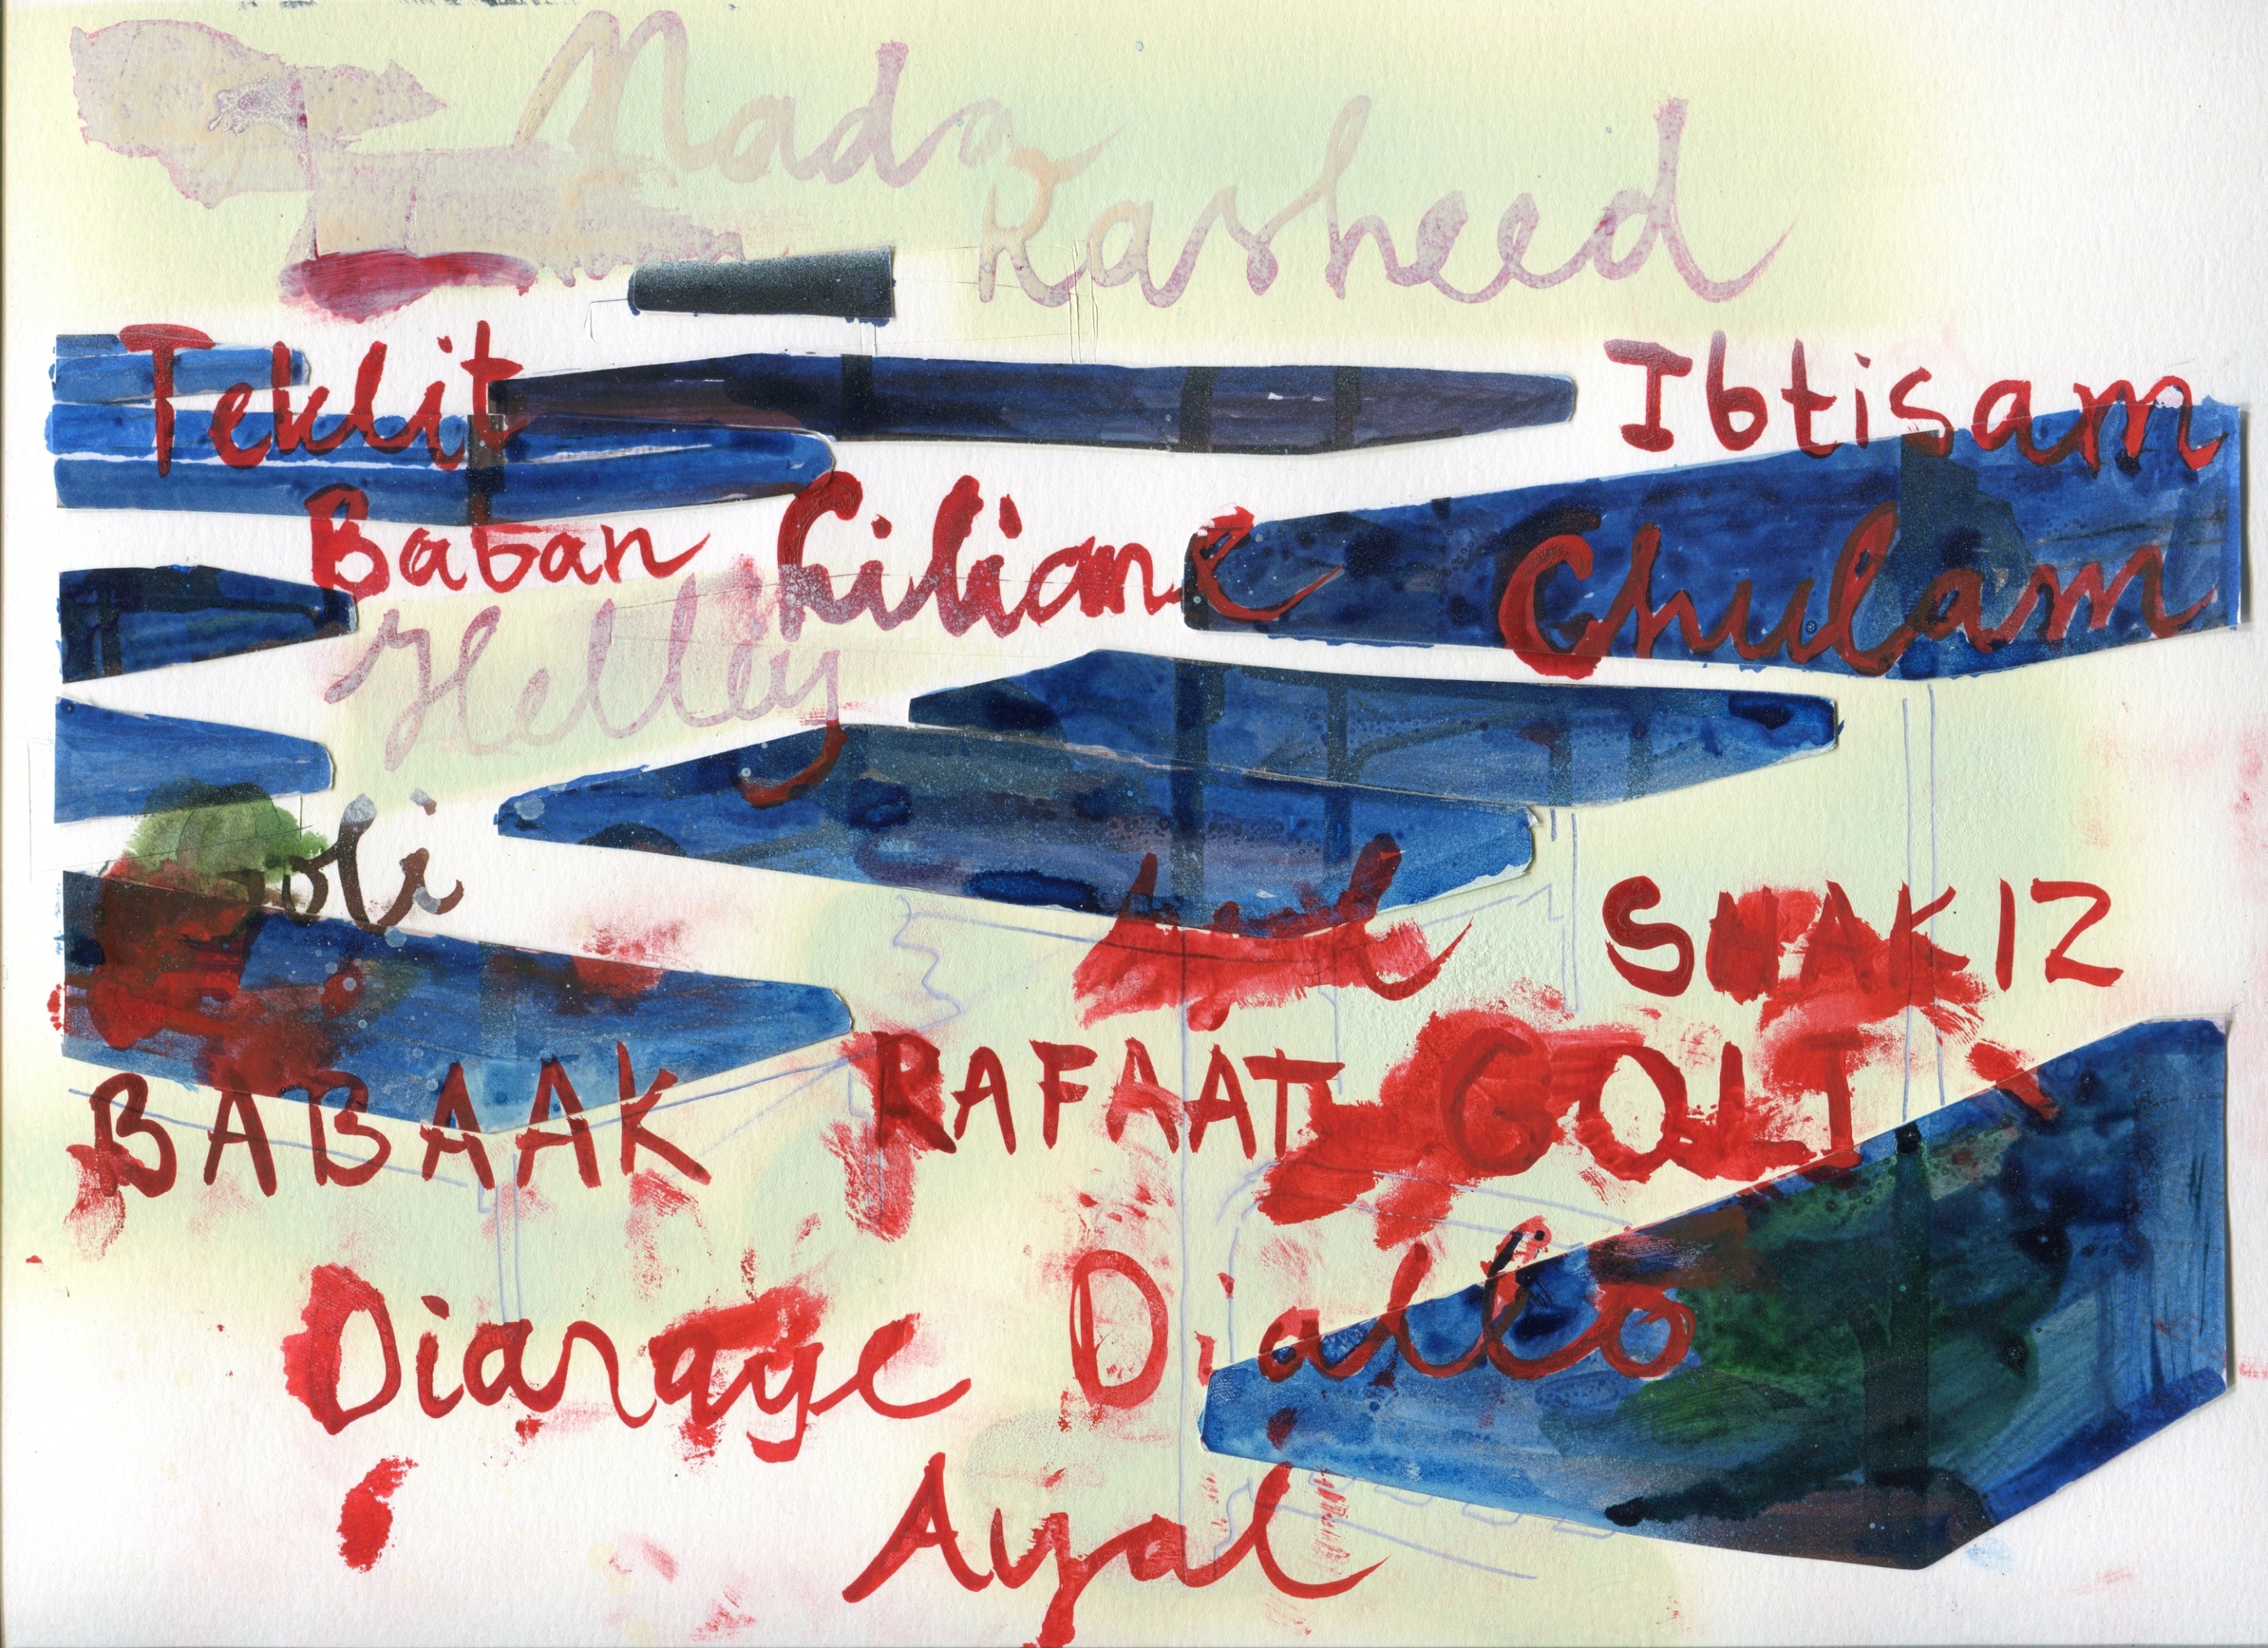 Nada
Rasheed
Teklit Ibtisam
Baban Liliane Ghulam
Helley
oli
SHAKIZ
BABAAK RAFAAT GOLI
Diaraye Diallo
Ayal